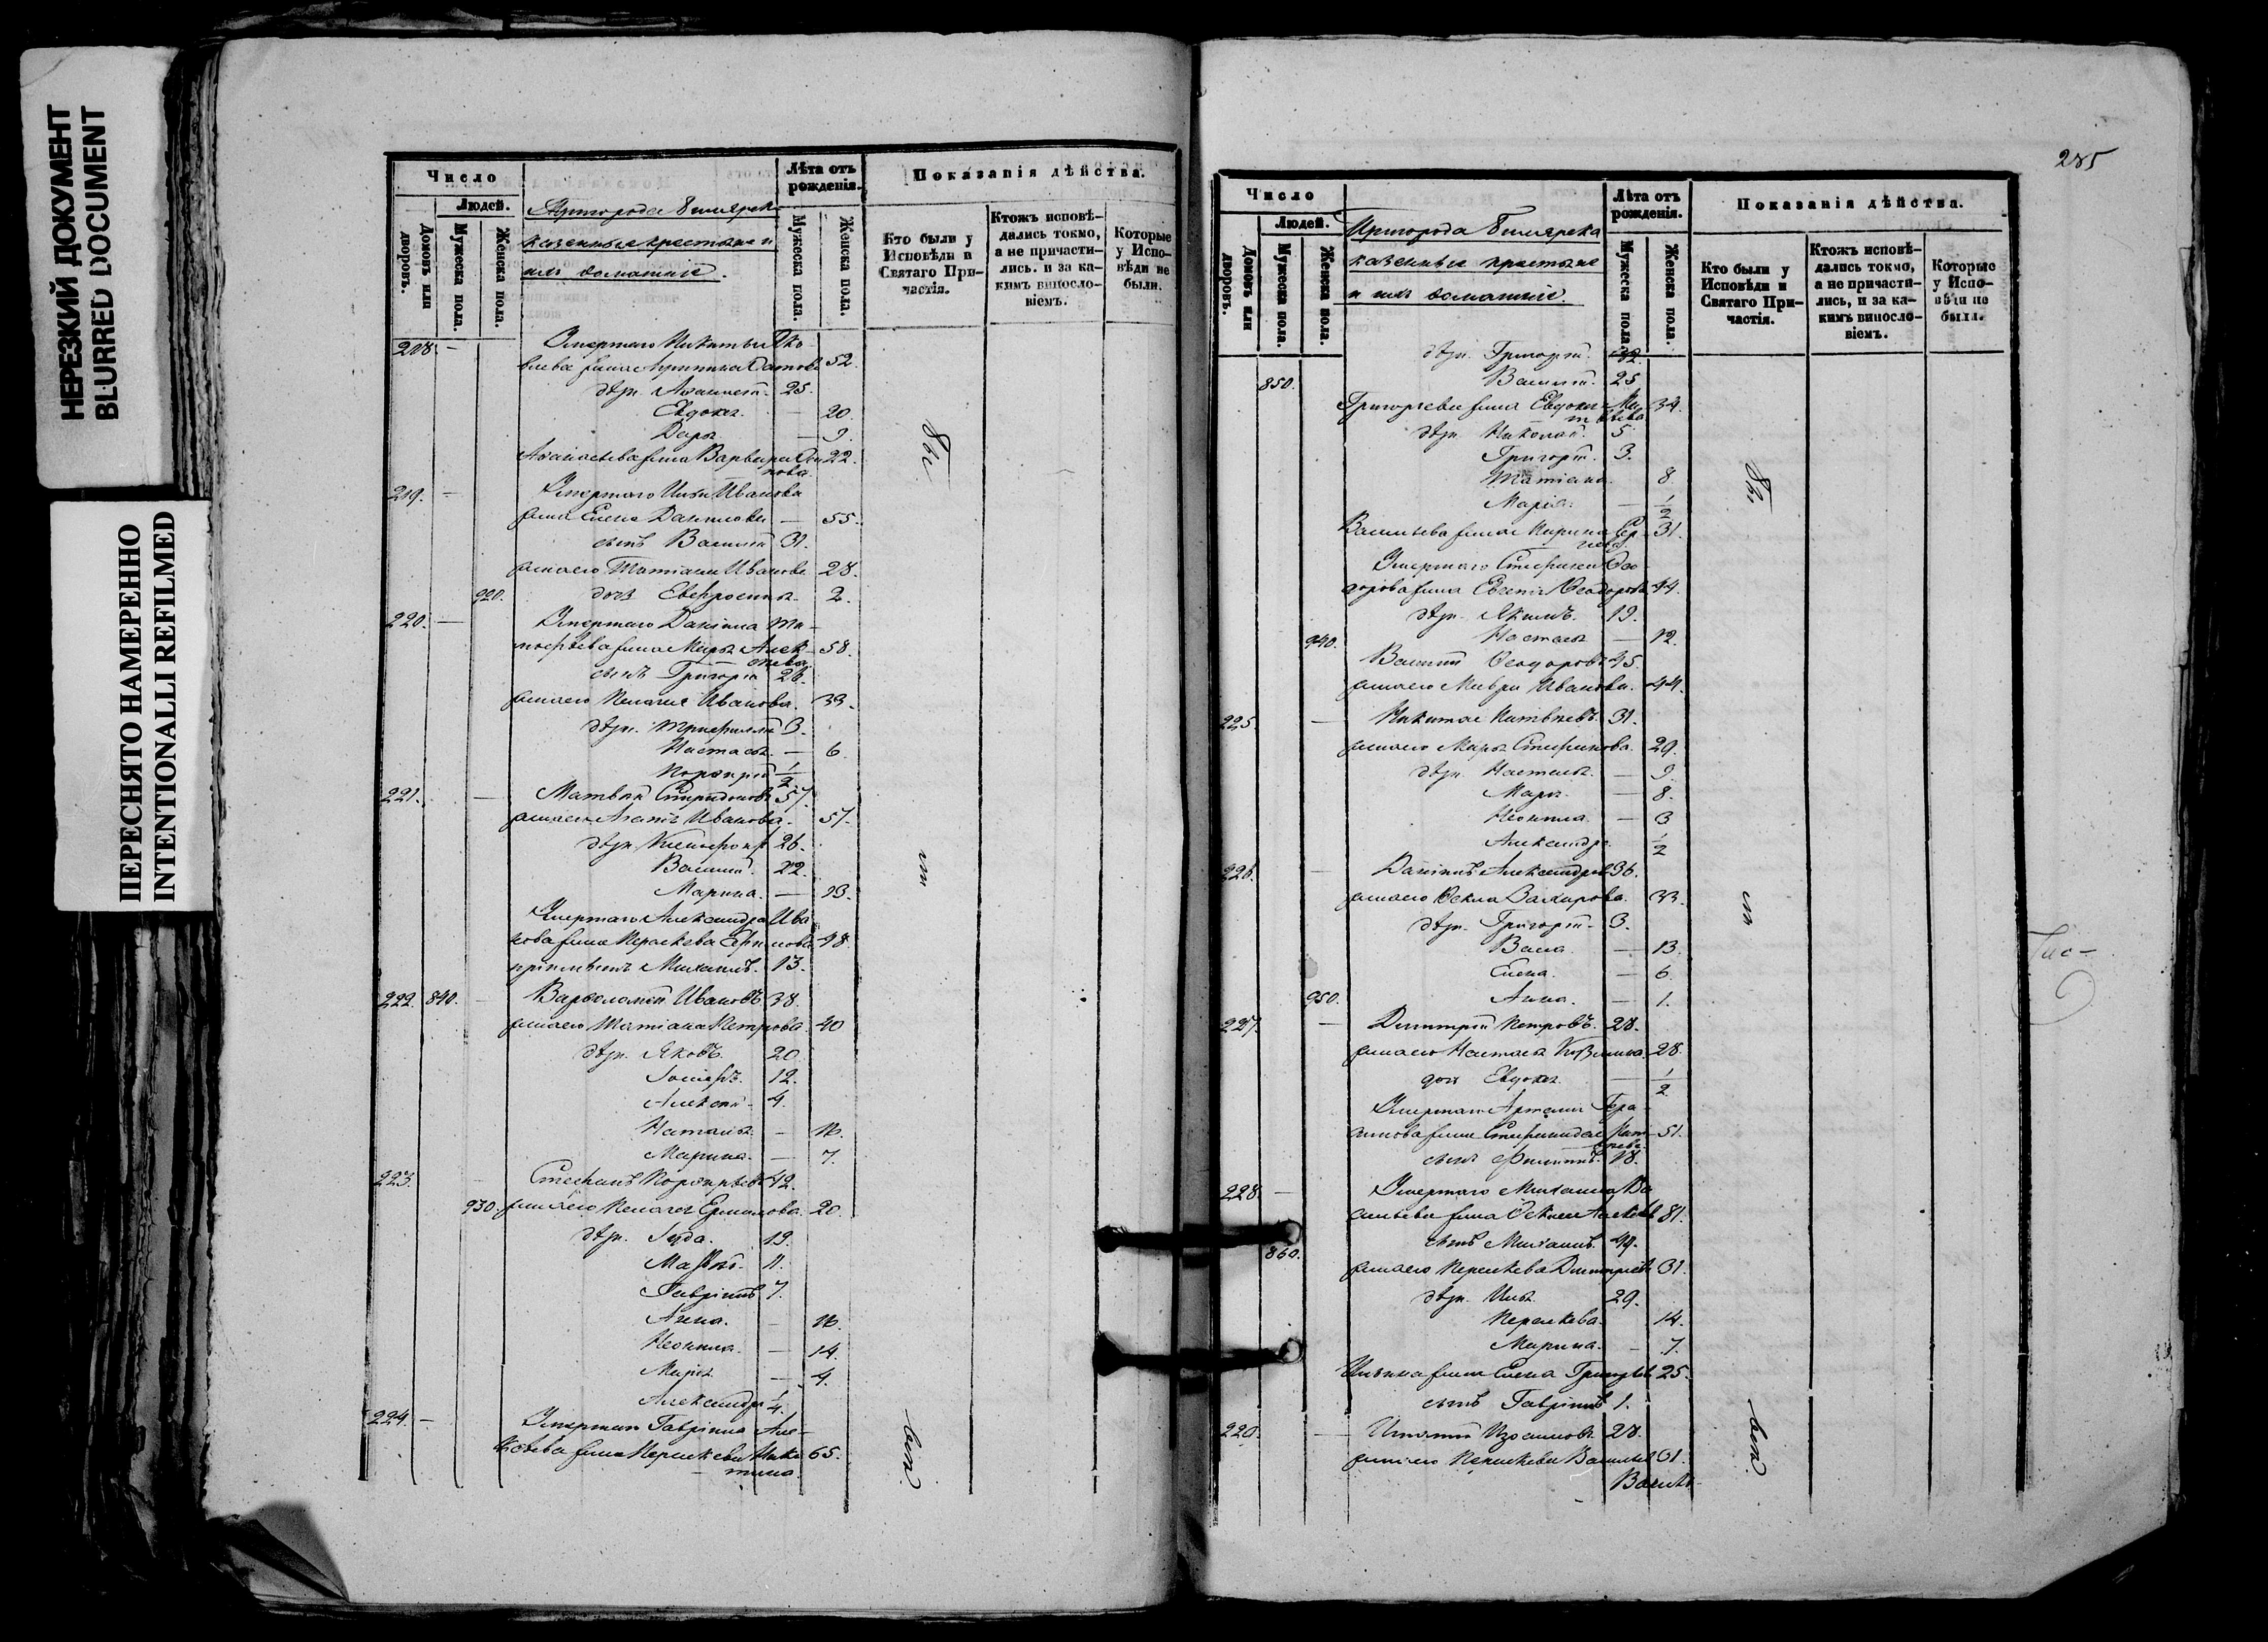 НЕРЕЗКИЙ ДОКУМЕНТ
BLURRED DOCUMENT
ПЕРЕСНЯТО НАМЕРЕННО
INTENTIONALLI REFILMED
Число
Людей.
Домовъ или дворовъ.
Мужеска пола.
Женска пола.
Пригорода Билярска
казенные крестьяне и
ихъ домашніе.
Лѣта отъ рожденія.
Мужеска пола.
Женска пола.
Показанія дѣйства.
Кто были у Исповѣди и Святаго Причастія.
Ктожъ исповѣдались токмо, а не причастились. и за какимъ винословіемъ.
Которые у Исповѣди не были.
218. — Умершаго Никиты Яко-
влева жена 52.
дѣти. 25.
Евдокія. — 20.
Дарья — 9.
жена Варвара 22.
219. — Умершаго Ильи Иванова
жена Елена Данилова — 55.
сынъ Василій 31.
жена его Татіана Иванова 28.
920. дочь Евфросинья. 2.
220. — Умершаго Даніила Ти-
мофѣева жена Марья Алек- 58.
сѣева
сынъ Григорій 26.
жена его Пелагея Иванова. 33.
дѣти. Трифилій 3.
Настасья. — 6.
Порфирій 1/2
221. — Матвѣй Спиридоновъ 57.
жена его Агафья Иванова. 57.
дѣти 26.
Василій. 22.
Марина. — 13.
Умершаго Александра Ива
нова жена Параскева 48.
Михаилъ. 13.
222. 840. Варфоломей Ивановъ 38.
жена его Татіана Петрова. 40
дѣти. Яковъ. 20.
Іосифъ. 12.
Алексей. 4.
Наталья. — 16.
Марина. — 7.
223. Стефанъ Порфирьевъ 42.
930. жена его Пелагея Ермолова. 20.
дѣти. Іуда. 19.
11.
Гавріилъ 7.
Анна. — 16.
Неонила. — 14.
Марья — 4.
Александръ 1/4.
224. — Умершаго Гавріила Але-
ксѣева жена Параскева Ники- 65.
тина.
Бы
ли
всѣ
285
Число
Людей.
Домовъ или дворовъ.
Мужеска пола.
Женска пола.
Пригорода Билярска
казенные крестьяне
и ихъ домашніе.
Лѣта отъ рожденія.
Мужеска пола.
Женска пола.
Показанія дѣйства.
Кто были у Исповѣди и Святаго Причастія.
Ктожъ исповѣдались токмо, а не причастились, и за какимъ винословіемъ.
Которые у Исповѣди не были.
дѣти. Григорій. 32.
850. Василій. 25
Григорьева жена Евдокія Ма- 34.
твѣева
дѣти. Николай. 5
Григорій. 3.
Татіана. 8.
Марія. — 1/2
Васильева жена Ирина Сер- 31.
гѣева
Умершаго Стефана Фео
дорова жена Евгенія Феодорова 44.
дѣти. Якимъ. 19.
940. Настасья — 12.
Василій Феодоровъ 45.
жена его Мавра Иванова. 44.
225. — Никита Матвѣевъ. 31.
жена его Марья Стефанова. 29.
дѣти. Настасья. — 9.
Марья. — 8.
Неонила. — 3
Александра. 1/2
226. — Даніилъ Александровъ 36.
жена его Фекла Захарова. 33.
дѣти. Григорій. 3.
Васса. — 13.
Елена. — 6.
950. Анна. — 1.
227. — Димитрій Петровъ. 28.
жена его Настасья Козмина. 28.
дочь Евдокія. — 1/2
Умершаго Гера-
симова жена Степанида Мат- 51.
вѣева
сынъ Филиппъ. 18.
228. — Умершаго Михаила Ва
сильева жена Фекла Алексѣев 81.
860. сынъ Михаилъ. 49.
жена его Параскева Димитріева 31.
дѣти. Илья. 29.
Параскева. 14.
Марина. — 7.
Ильина жена Елена Григорьев 25.
сынъ Гавріилъ 1.
229. — Ипатій 28.
жена его Параскева Васильев 31.
Василь-
Бы
ли
всѣ